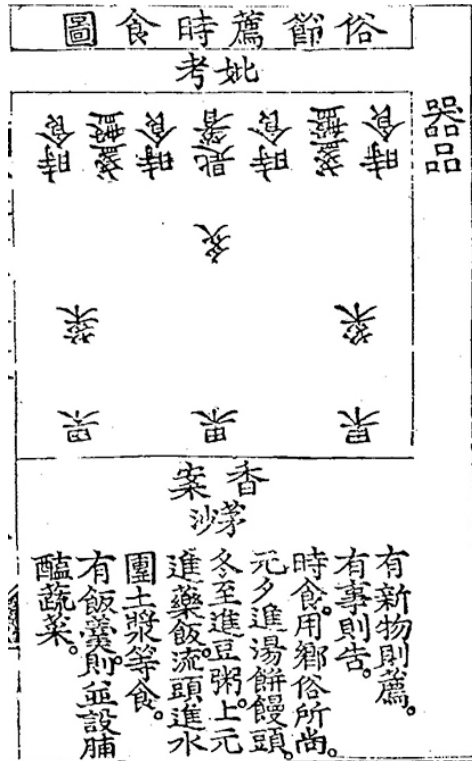 俗節薦時食圖
妣考
器品
時食 盞盤 時食 匙箸 時食 盞盤 時食
炙
菜 菜
果 果 果
香案
茅沙
有新物則薦。
有事則告。
時食。用鄕俗所尚。
元夕進湯餠饅頭。
冬至進豆粥。上元
進藥飯。流頭進水
團土漿等食。
有飯羹則。並設脯
醢蔬菜。